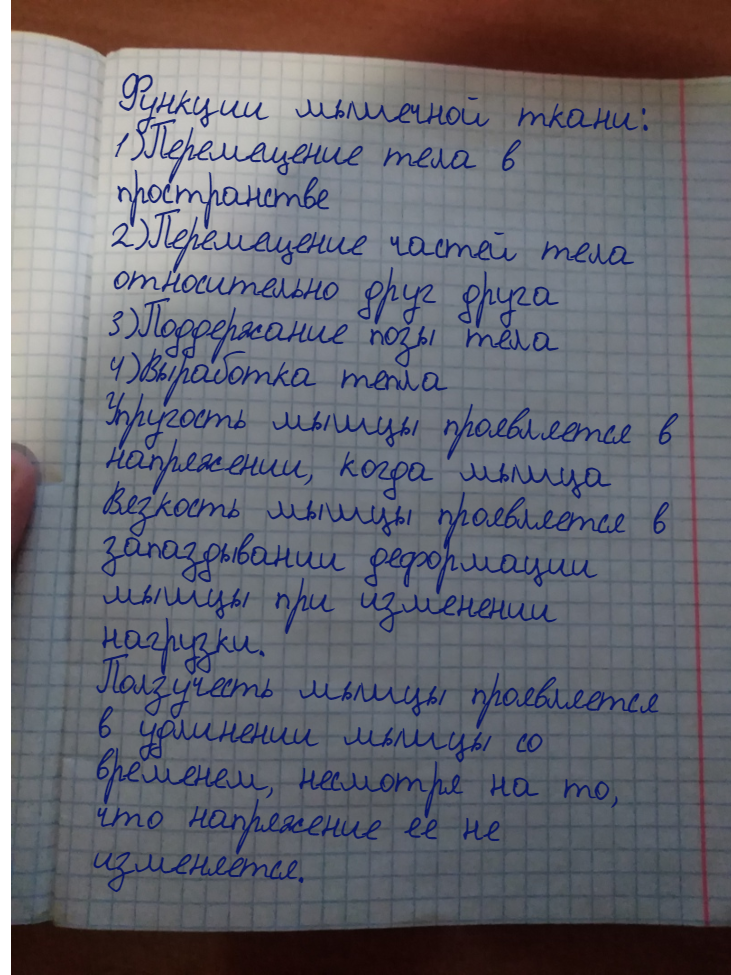 Функции мышечной ткани:
1) Перемещение тела в
пространстве
2) Перемещение частей тела
относительно друг друга
3) Поддержание позы тела
4) Выработка тепла
Упругость мышцы проявляется в
напряжении, когда мышца
Вязкость мышцы проявляется в
запаздывании деформации
мышцы при изменении
нагрузки.
Ползучесть мышцы проявляется
в удлинении мышцы со
временем, несмотря на то,
что напряжение ее не
изменяется.